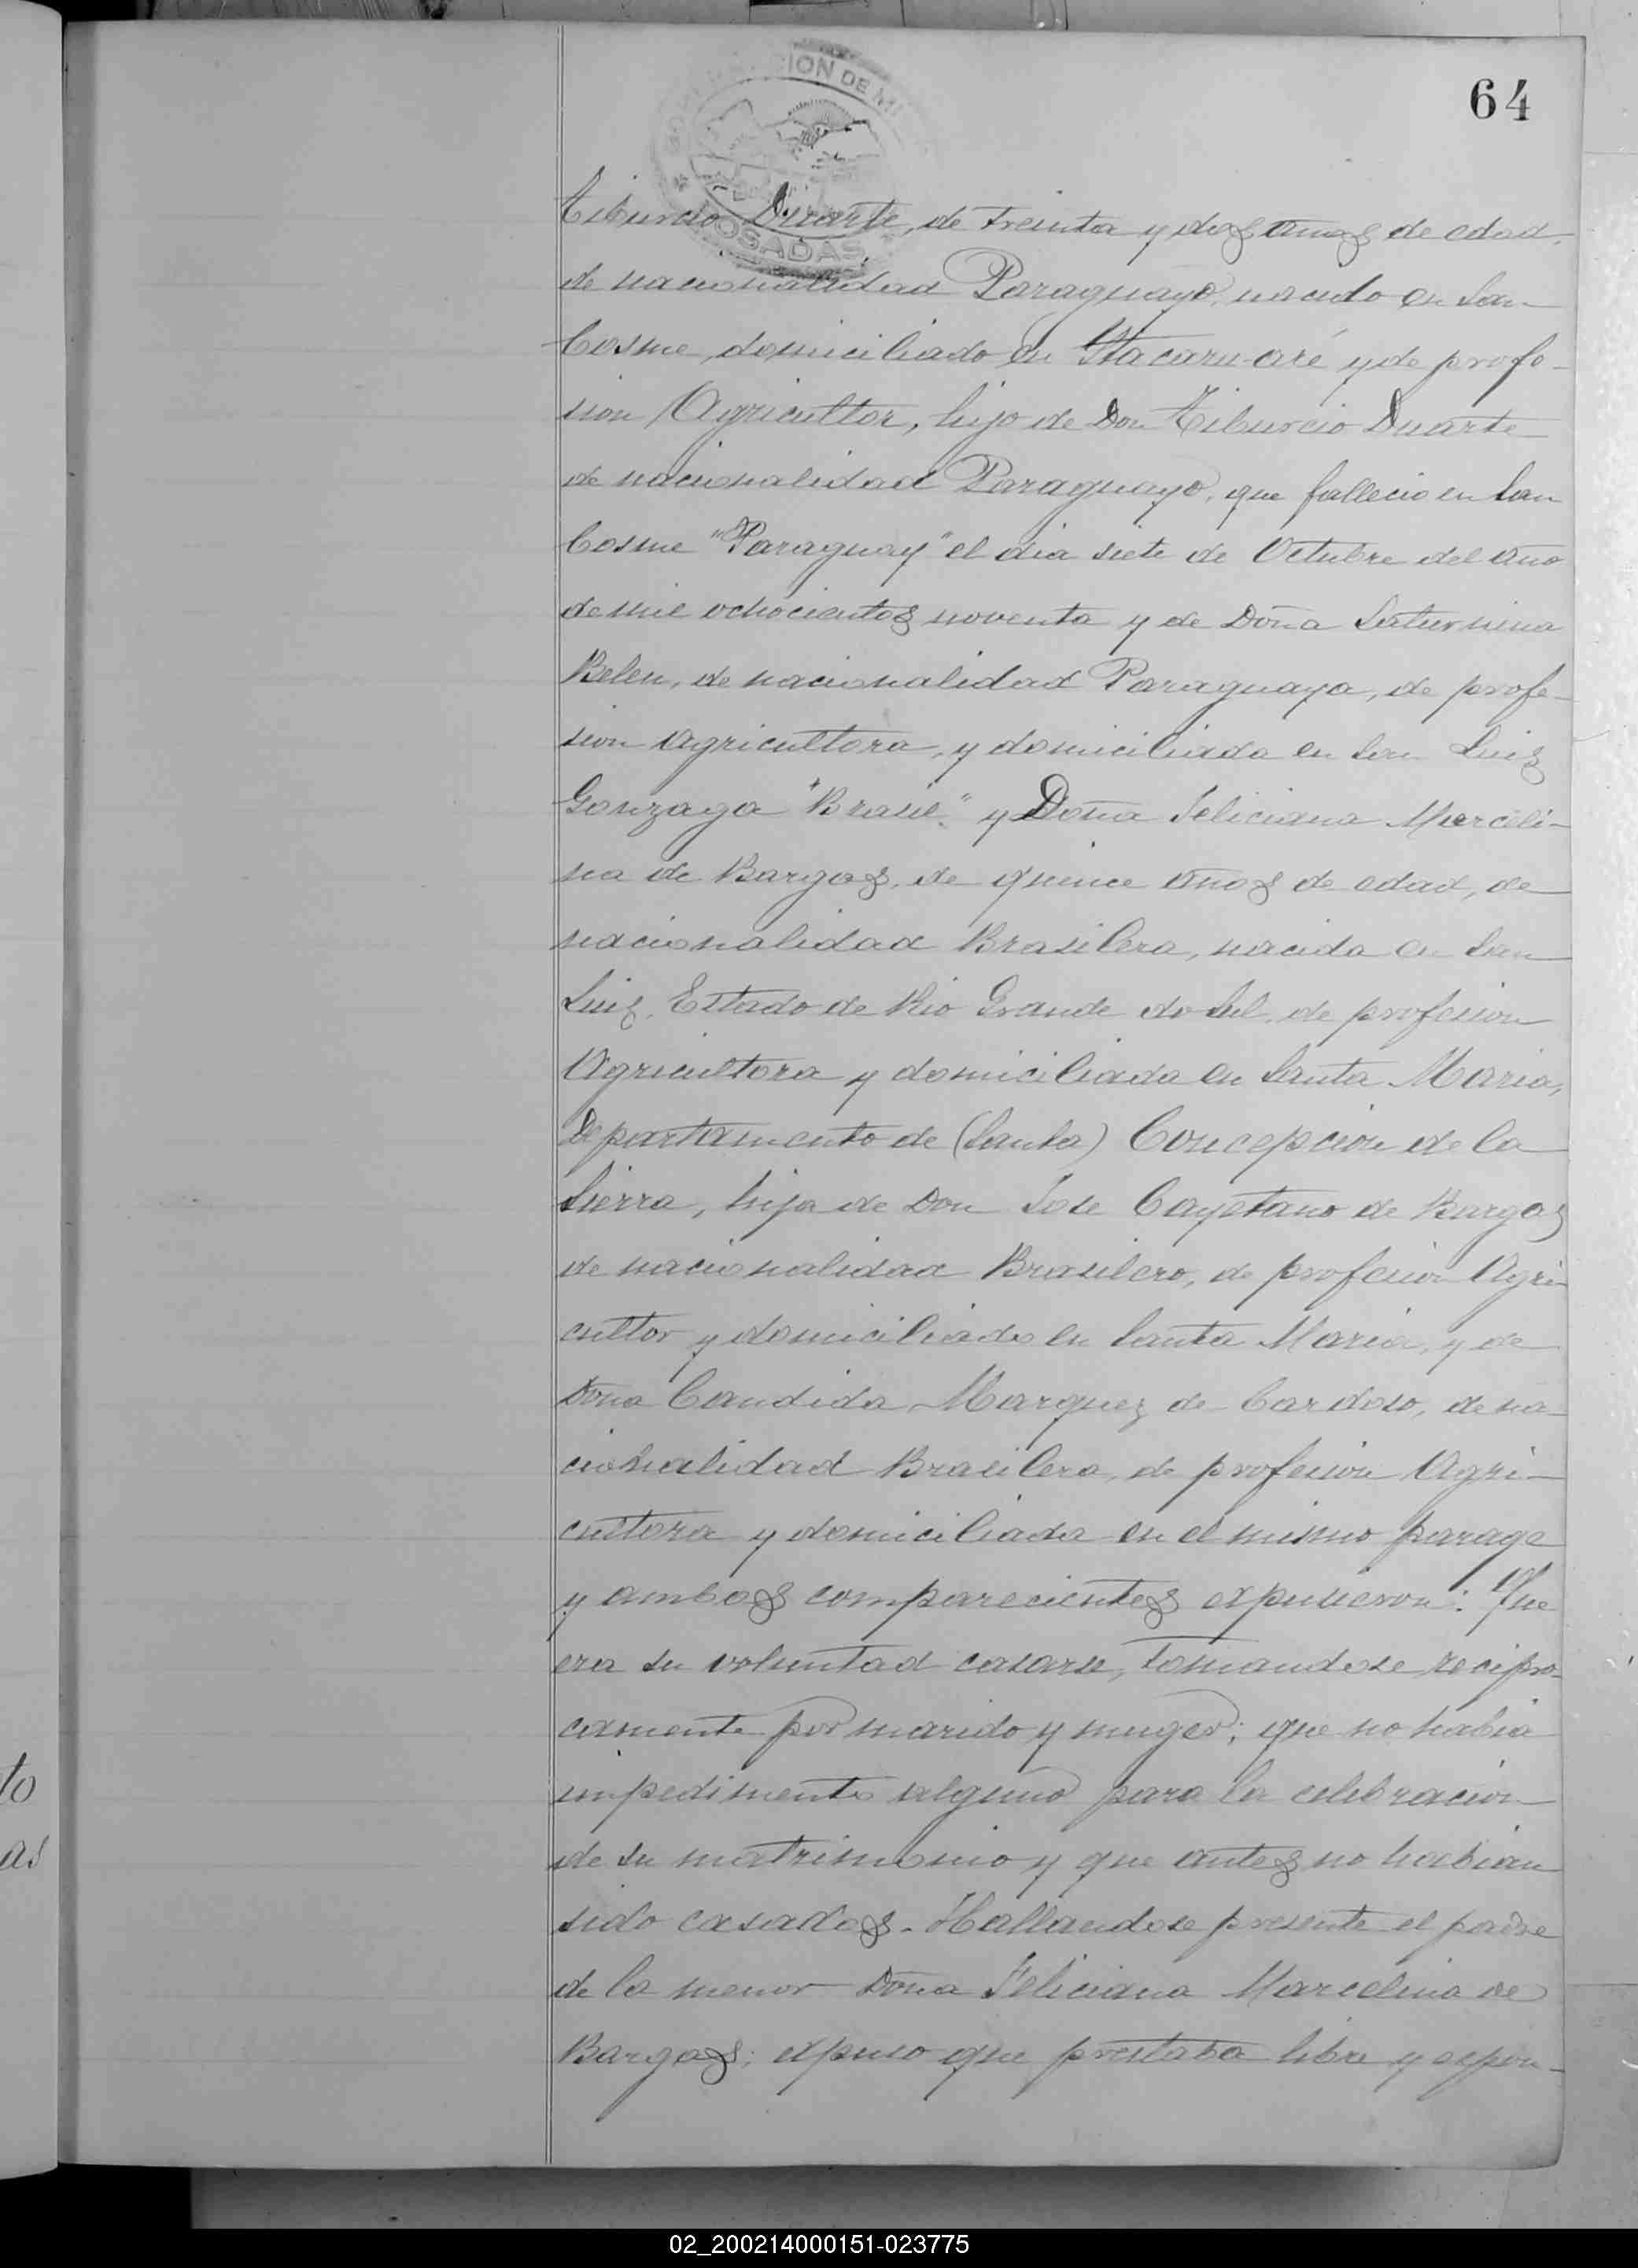 64
GOBERNACION DE MI
POSADAS
Tiburcio Duarte, de treinta y dos años de edad,
de nacionalidad Paraguayo, nacido en San
Cosme, domiciliado en Itacaru-aré y de profe-
sion Agricultor, hijo de Don Tiburcio Duarte
de nacionalidad Paraguayo, que fallecio en San
Cosme "Paraguay" el dia siete de Octubre del año
de mil ochocientos noventa y de Doña Saturnina
Belen, de nacionalidad Paraguaya, de profe-
sion agricultora, y domiciliada en San Luis
Gonzaga "Brasil" y Doña Feliciana Marceli-
na de Bargas, de quince años de edad, de
nacionalidad Brasilera, nacida en San
Luis, Estado de Rio Grande do Sul, de profesion
Agricultora y domiciliada en Santa Maria,
Departamento de (Santa) Concepcion de la
Sierra, hija de Don Jose Cayetano de Bargas
de nacionalidad Brasilero, de profesion Agri-
cultor y domiciliado en Santa Maria, y de
Doña Candida Marquez de Cardoso, de na-
cionalidad Brasilera, de profesion Agri-
cultora y domiciliada en el mismo parage
y ambos comparecientes expusieron: Que
era su voluntad casarse, tomandose recipro-
camente por marido y muger; que no habia
impedimento alguno para la celebracion
de su matrimonio y que antes no habian
sido casados. Hallandose presente el padre
de la menor Doña Feliciana Marcelina de
Bargas; expuso que prestaba libre y espon-
to
as
02_200214000151-023775